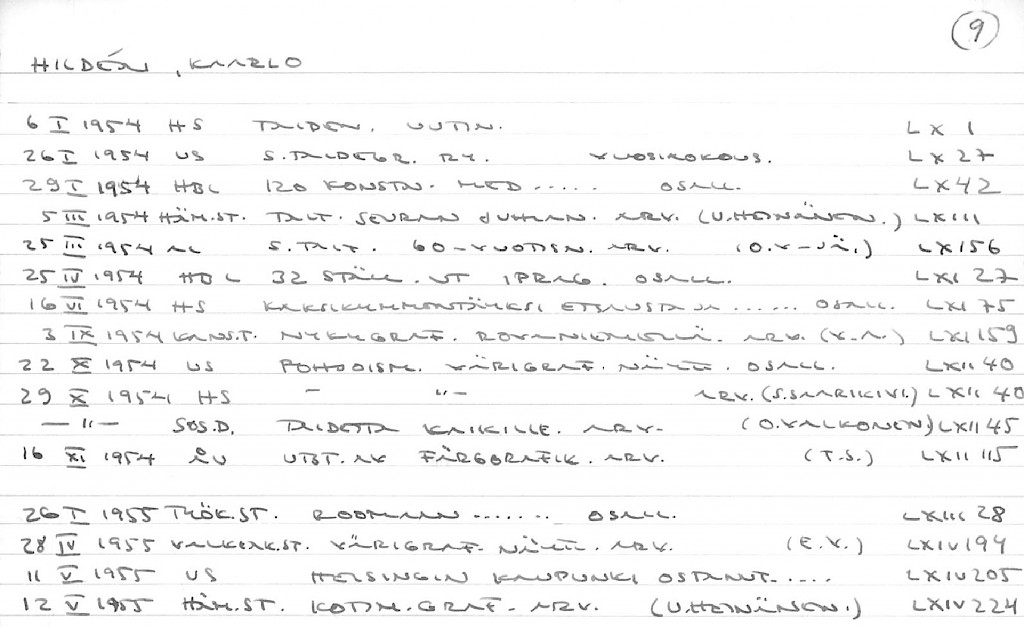 9
HILDÉN, KAARLO
6 I 1954 HS TAIDEN. UUTIN. LX 1
26 I 1954 US S. TAIDEGR. RY. VUOSIKOKOUS. LX 27
29 I 1954 HBL 120 KONSTN. MED ..... OSALL. LX 42
5 III 1954 HÄM.ST. TAIT. SEURAN JUHLAN. ARV. (U.HEINÄNEN.) LX 111
25 III 1954 AL S.TAIT. 60-VUOTISN. ARV. (O.V-JÄ.) LX 156
25 IV 1954 HBL 32 STÄLL. UT I PRAG. OSALL. LXI 27
16 VI 1954 HS KAKSIKYMMENTÄYKSI EHDUSTAJA ...... OSALL. LXI 75
3 IX 1954 KANS.T. NYKYGRAF. ROVANIEMELLÄ. ARV. (V.A.) LXI 159
22 X 1954 US POHJOISM. VÄRIGRAF. NÄYTT. OSALL. LXII 40
29 X 1954 HS - -"- ARV. (S.SAARIKIVI.) LXII 40
-"- SOS.D. TAIDETTA KAIKILLE. ARV. (O.VALKONEN) LXII 45
16 XI 1954 ÅU UTST. AV FÄRGGRAFIK. ARV. (T.S.) LXII 115
26 I 1955 TYÖK.ST. ROOMAAN ....... OSALL. LXIII 28
28 IV 1955 VALKEAK.ST. VÄRIGRAF. NÄYTT. ARV. (E.V.) LXIV 194
11 V 1955 US HELSINGIN KAUPUNKI OSTANUT ..... LXIV 205
12 V 1955 HÄM.ST. KOTIM. GRAF. ARV. (U.HEINÄNEN.) LXIV 224